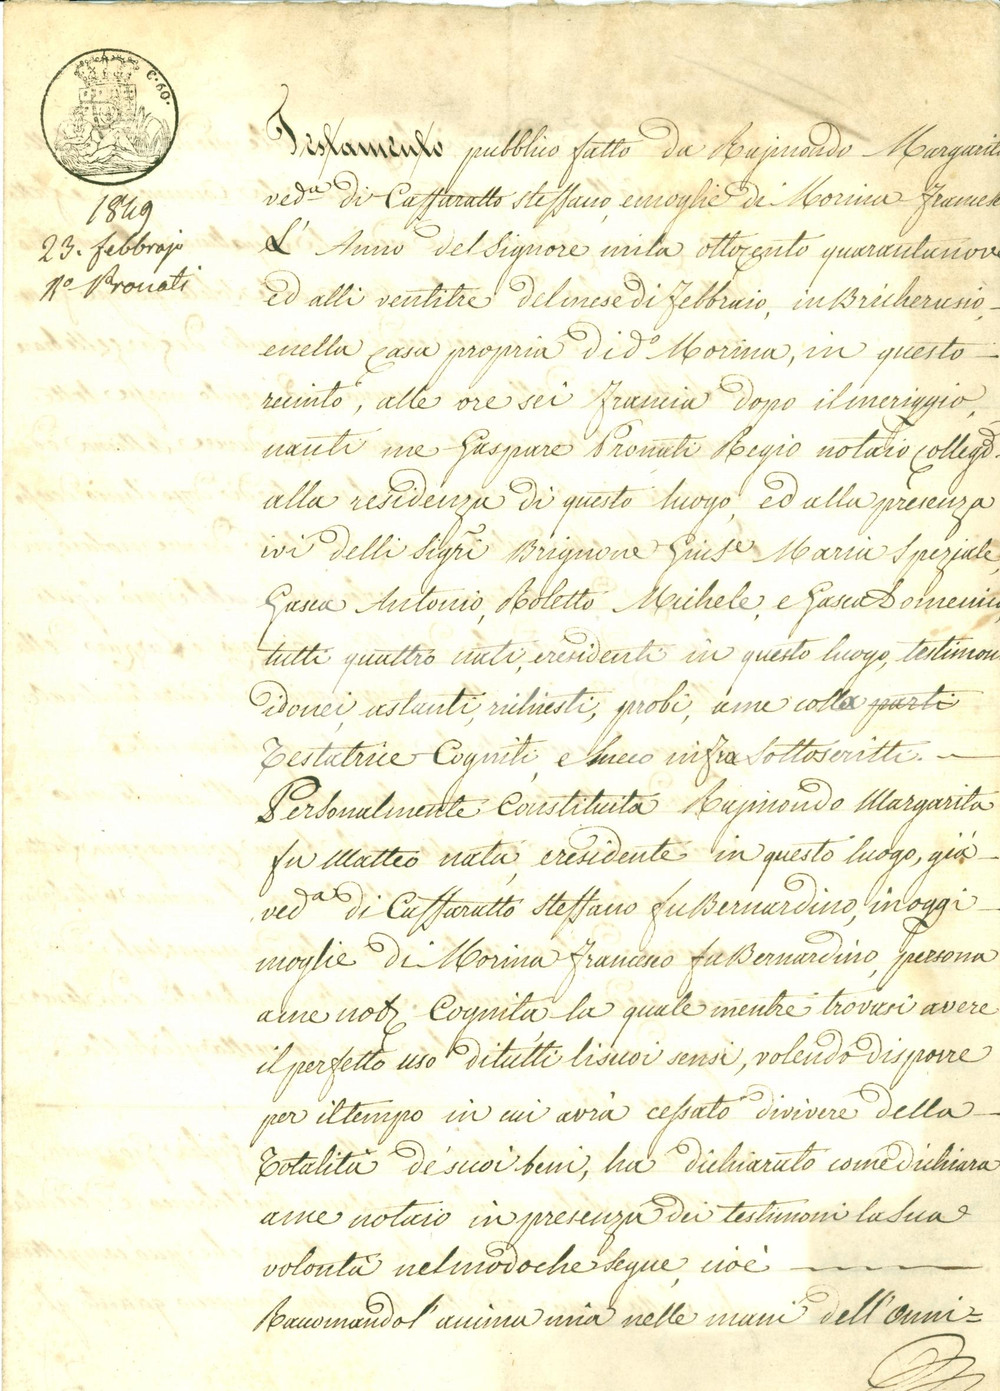 C. 60.
1849
23. febbrajo
Nº Pronati
Testamento pubblico fatto da Rajmondo Margarita
vedª di Caffaratto steffano, e moglie di Morina Francesc
L' Anno del Signore mila ottocento quarantanove
ed alli ventitre del mese di Febbraio, in Bricherasio, –
e nella Casa propria di dº Morina, in questo –
recinto, alle ore sei francia dopo il meriggio,
nanti me Gaspare Pronati Regio notaio colleg.
alla residenza di questo luogo, ed alla presenza
ivi delli Sigri Brignone Giuse Maria Speziale,
Gasca Antonio, Roletto Michele, e Gasca Domenico,
tutti quattro nati, e residenti in questo luogo, testimon
idonei, astanti, richiesti, probi, a me colla parti
Testatrice Cogniti, e meco infra Sottoscritti. —
Personalmente Constituita Rajmondo Margarita
fu Matteo nata, e residente in questo luogo, già –
vedª di Caffaratto steffano fu Bernardino, in oggi –
moglie di Morina francesco fu Bernardino, persona
a me not Cognita la quale mentre trovasi avere
il perfetto uso di tutti li suoi sensi, volendo disporre
per il tempo in cui avrà cessato di vivere della –
Totalità de' suoi beni, ha dichiarato come dichiara
a me notaio in presenza dei testimoni la Sua
volontà nel modo che Segue, cioè —
Raccomando l'anima mia nelle mani dell'Onni=